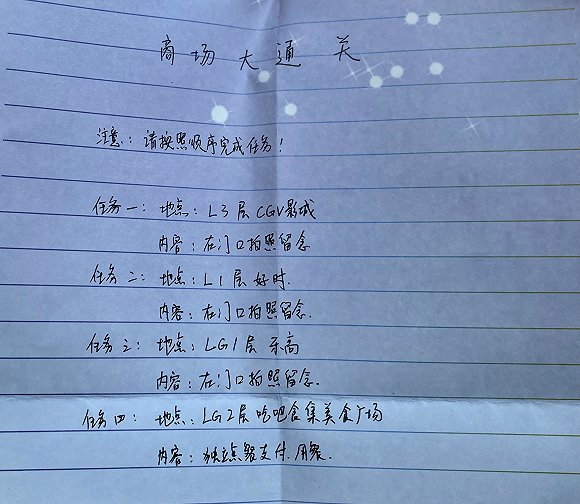 商场大通关
注意：请按照顺序完成任务！
任务一：地点：L3层CGV影城
内容：在门口拍照留念
任务二：地点：L1层 好时.
内容：在门口拍照留念.
任务三：地点：LG1层 乐高
内容：在门口拍照留念.
任务四：地点：LG2层吃吧合集美食广场
内容：独立点餐支付.用餐.